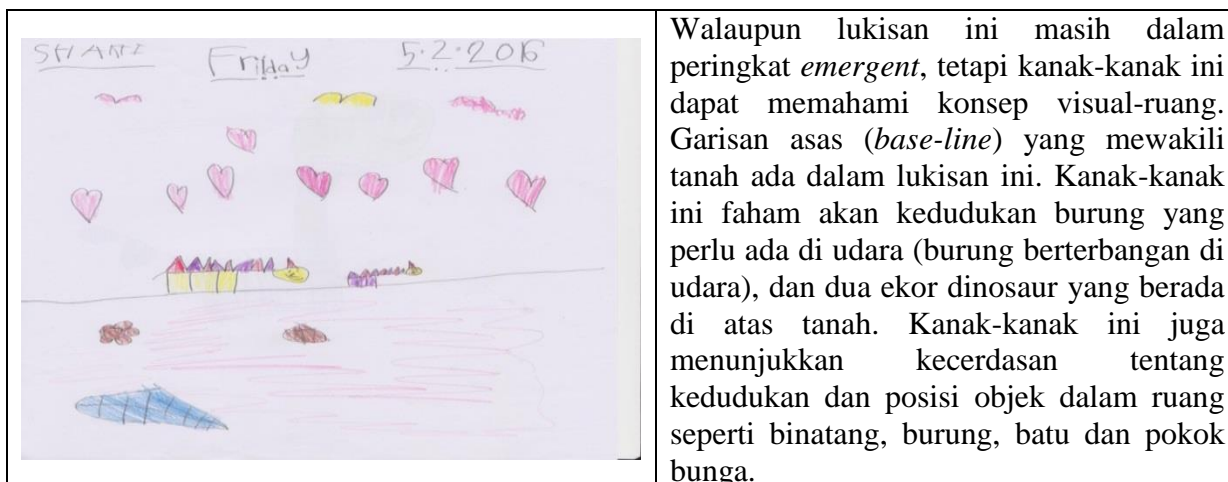 Friday 5.2.2016
Walaupun lukisan ini masih dalam
peringkat emergent, tetapi kanak-kanak ini
dapat memahami konsep visual-ruang.
Garisan asas (base-line) yang mewakili
tanah ada dalam lukisan ini. Kanak-kanak
ini faham akan kedudukan burung yang
perlu ada di udara (burung berterbangan di
udara), dan dua ekor dinosaur yang berada
di atas tanah. Kanak-kanak ini juga
menunjukkan kecerdasan tentang
kedudukan dan posisi objek dalam ruang
seperti binatang, burung, batu dan pokok
bunga.